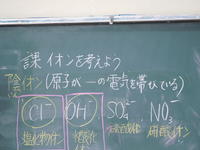 課 イオンを考えよう
陰イオン(原子が一の電気を帯びている)
Cl⁻ OH⁻ SO₄²⁻ NO₃⁻
塩化物イオン 水酸化 硝酸イオン